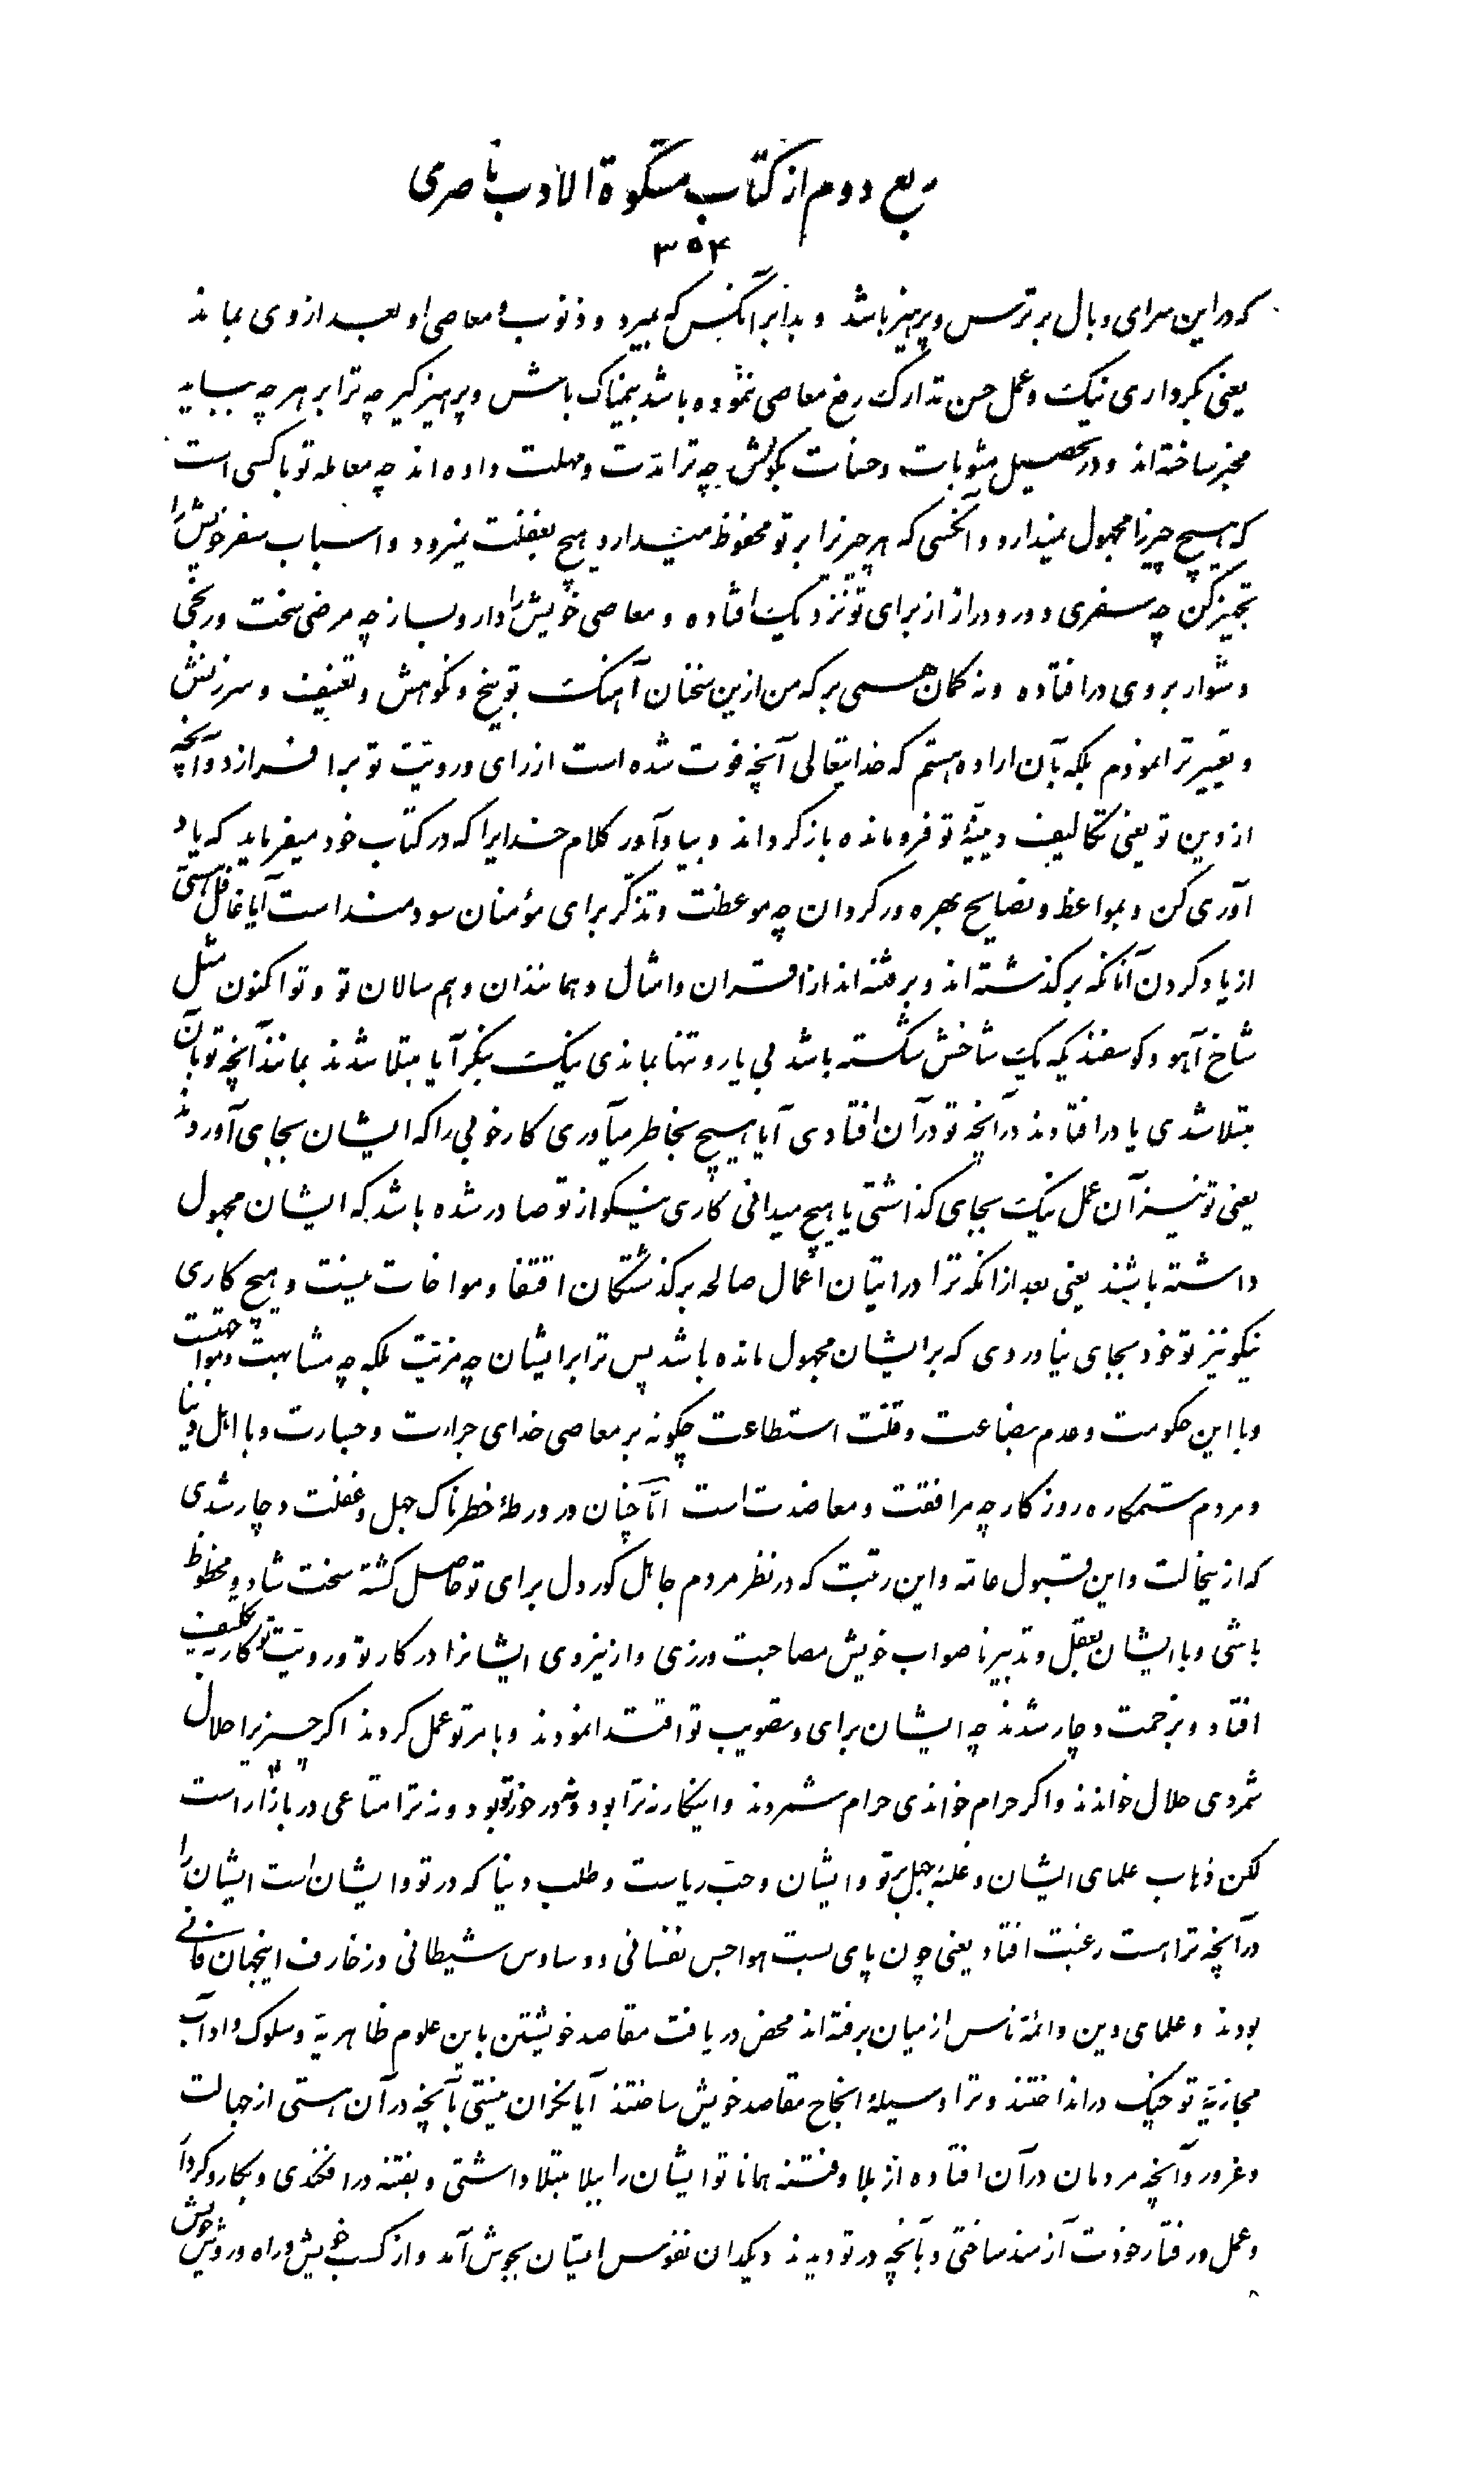 ربع دوم از کتاب مشکوة الادب ناصری
۳۵۴
که در این سرای وبال بر ترس و پرهیز باشد و بدا بر آنکس که بمیرد و ذنوب و معاصی او بعد از وی بماند
یعنی بکرداری نیک و عمل حسن تدارک رفع معاصی ننموده باشد بیمناک باش و پرهیز گیر چه ترا بر هر چه بباید
مخبر ساخته‌اند و در تحصیل مثوبات و حسنات بکوش چه ترا مدّت و مهلت داده‌اند چه معامله تو با کسی است
که هیچ چیز را مجهول نمیدارد و آنکسی که هر چیز را بر تو محفوظ میدارد هیچ بغفلت نمیرود و اسباب سفر خویش را
تجهیز کن چه سفری دور و دراز از برای تو نزدیک افتاده و معاصی خویش را دارو بساز چه مرضی سخت و رنجی
دشوار بروی در افتاده و نه گمان همی بر که من ازین سخنان آهنگ توبیخ و نکوهش و تعنیف و سرزنش
و تعییر ترا نمودم بلکه بآن اراده هستم که خدایتعالی آنچه فوت شده است از رای و رویّت تو بر افرازد و آنچه
از دین تو یعنی تکالیف دینیّهٔ تو فرومانده بازگرداند و بیاد آور کلام خدایرا که در کتاب خود میفرماید که یاد
آوری کن و بمواعظ و نصایح بهره ور گردان چه موعظت و تذکّر برای مؤمنان سودمند است آیا غافل هستی
از یاد کردن آنانکه برگذشته‌اند و برفته‌اند از اقران و امثال و همانندان و هم سالان تو و تو اکنون مثل
شاخ آهو و گوسفندیکه یک شاخش شکسته باشد بی یار و تنها بماندی نیک بنگر آیا مبتلا شدند بمانند آنچه تو بآن
مبتلا شدی یا در افتادند در آنچه تو در آن افتادی آیا هیچ بخاطر میآوری کار خوبی را که ایشان بجای آوردند
یعنی تو نیز آن عمل نیک بجای گذاشتی یا هیچ میدانی کاری نیکو از تو صادر شده باشد که ایشان مجهول
داشته باشند یعنی بعد از آنکه ترا در اتیان اعمال صالحه برگذشتگان اقتفا و مواخات نیست و هیچ کاری
نیکو نیز تو خود بجای نیاوردی که بر ایشان مجهول مانده باشد پس ترا بر ایشان چه مزیّت بلکه چه مشابهت و مواخت
و با این حکومت و عدم بضاعت و قلّت استطاعت چگونه بر معاصی خدای جرات و جسارت و با اهل دنیا
و مردم ستمکاره روزگار چه مرافقت و معاضدت است امّا چنان در ورطهٔ خطرناک جهل و غفلت دچار شدی
که از اینحالت و این قبول عامّه و این رتبت که در نظر مردم جاهل کور دل برای تو حاصل گشته سخت شاد و محظوظ
باشی و با ایشان بعقل و تدبیر ناصواب خویش مصاحبت ورزی و از نیروی ایشانرا در کار تو و رویّت تو کار بتکلیف
افتاد و بزحمت دچار شدند چه ایشان برای و تصویب تو اقتدا نمودند و بامر تو عمل کردند اگر چیزیرا حلال
شمردی حلال خواندند و اگر حرام خواندی حرام شمردند و اینکار نه ترا بود و نه در خور تو بود و نه ترا متاعی در بازار است
لکن ذهاب علمای ایشان و غلبهٔ جهل بر تو و ایشان و حبّ ریاست و طلب دنیا که در تو و ایشان است ایشان را
در آنچه تراست رغبت افتاد یعنی چون پای بست هواجس نفسانی و وساوس شیطانی و زخارف اینجهان فانی
بودند و علمای دین و ائمّه ناس از میان برفته‌اند محض دریافت مقاصد خویشتن باین علوم ظاهریّه و سلوک و آداب
مجازیّه تو چنگ در انداختند و ترا وسیلهٔ انجاح مقاصد خویش ساختند آیا نگران نیستی بآنچه در آن هستی از جهالت
و غرور و آنچه مردمان در آن افتاده از بلا و فتنه همانا تو ایشان را ببلا مبتلا داشتی و بفتنه در افکندی و بکار و کردار
و عمل و رفتار خودت آزمند ساختی و بآنچه در تو دیدند دیگدان نفوس ایشان بجوش آمد و از کسب خویش و راه و روش خویش